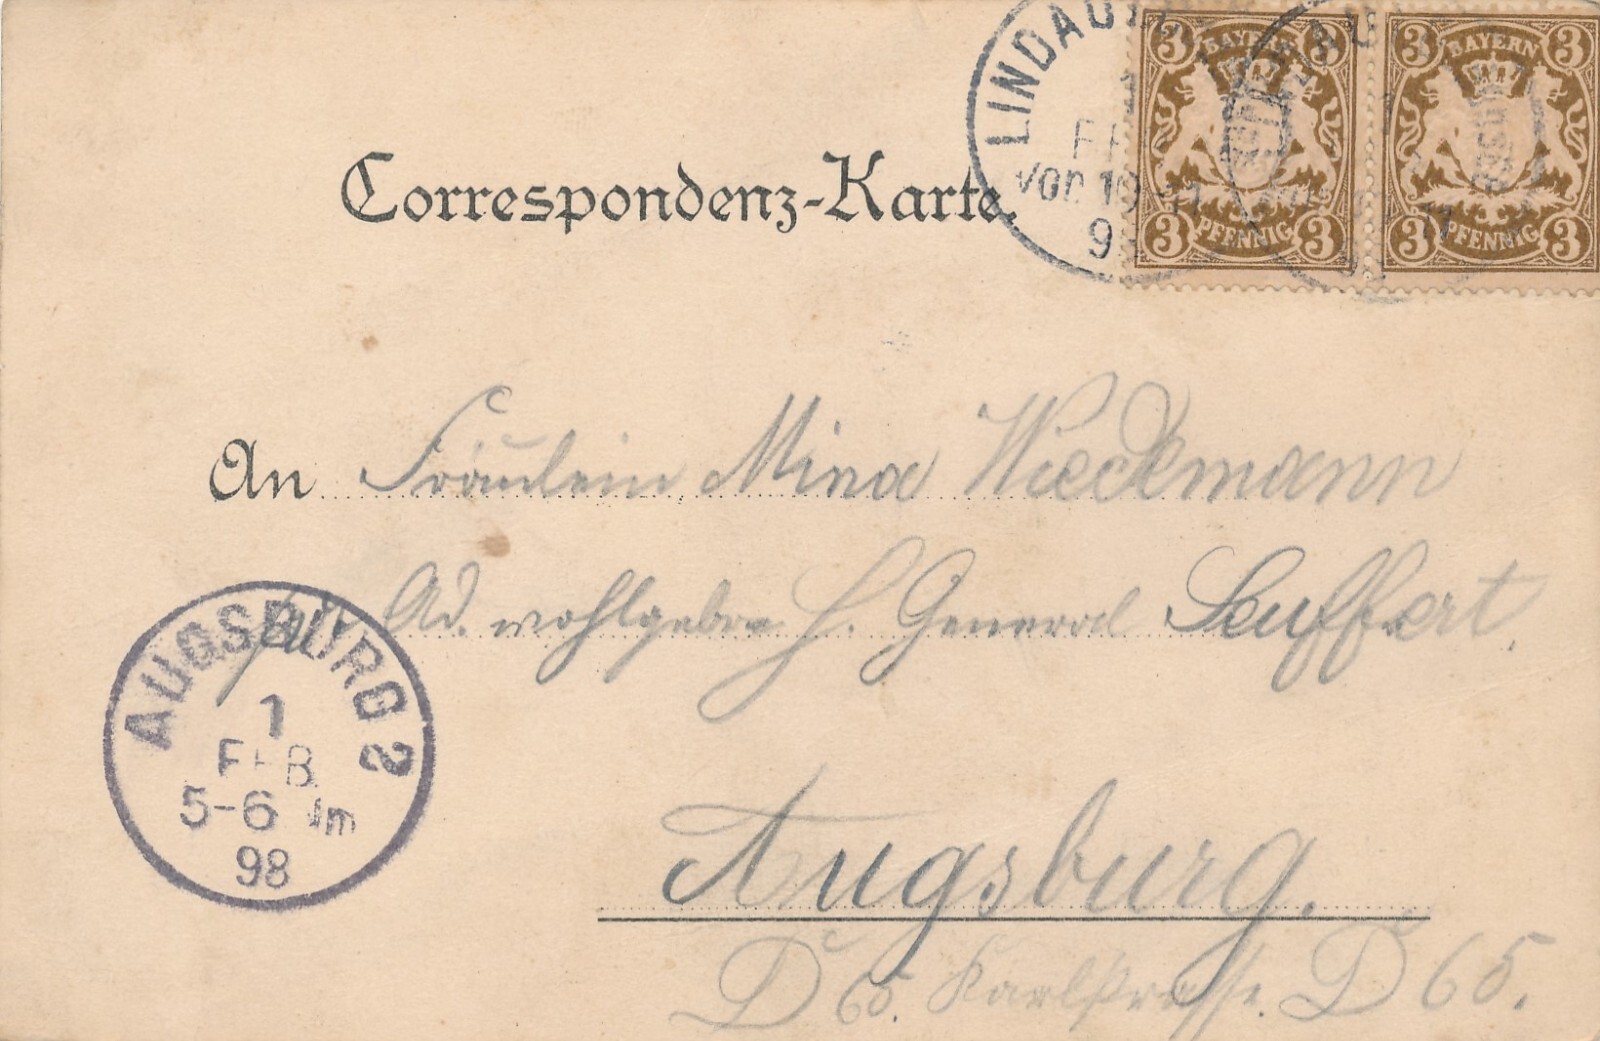 LINDAU
1
FEB
Von 10-11
98
3 BAYERN 3
3 PFENNIG 3
3 BAYERN 3
3 PFENNIG 3
Correspondenz-Karte.
An Fräulein Mina Wieckmann
Ad. wohlgebor H. General Seuffert.
AUGSBURG 2
1
FEB.
5-6 Nm
98
Augsburg.
D 65. Karlstrasse. D 65.